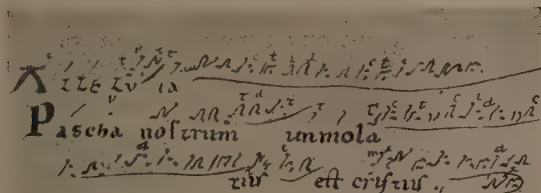 ALLELVIA
Pascha nostrum unmola
tus est cristus